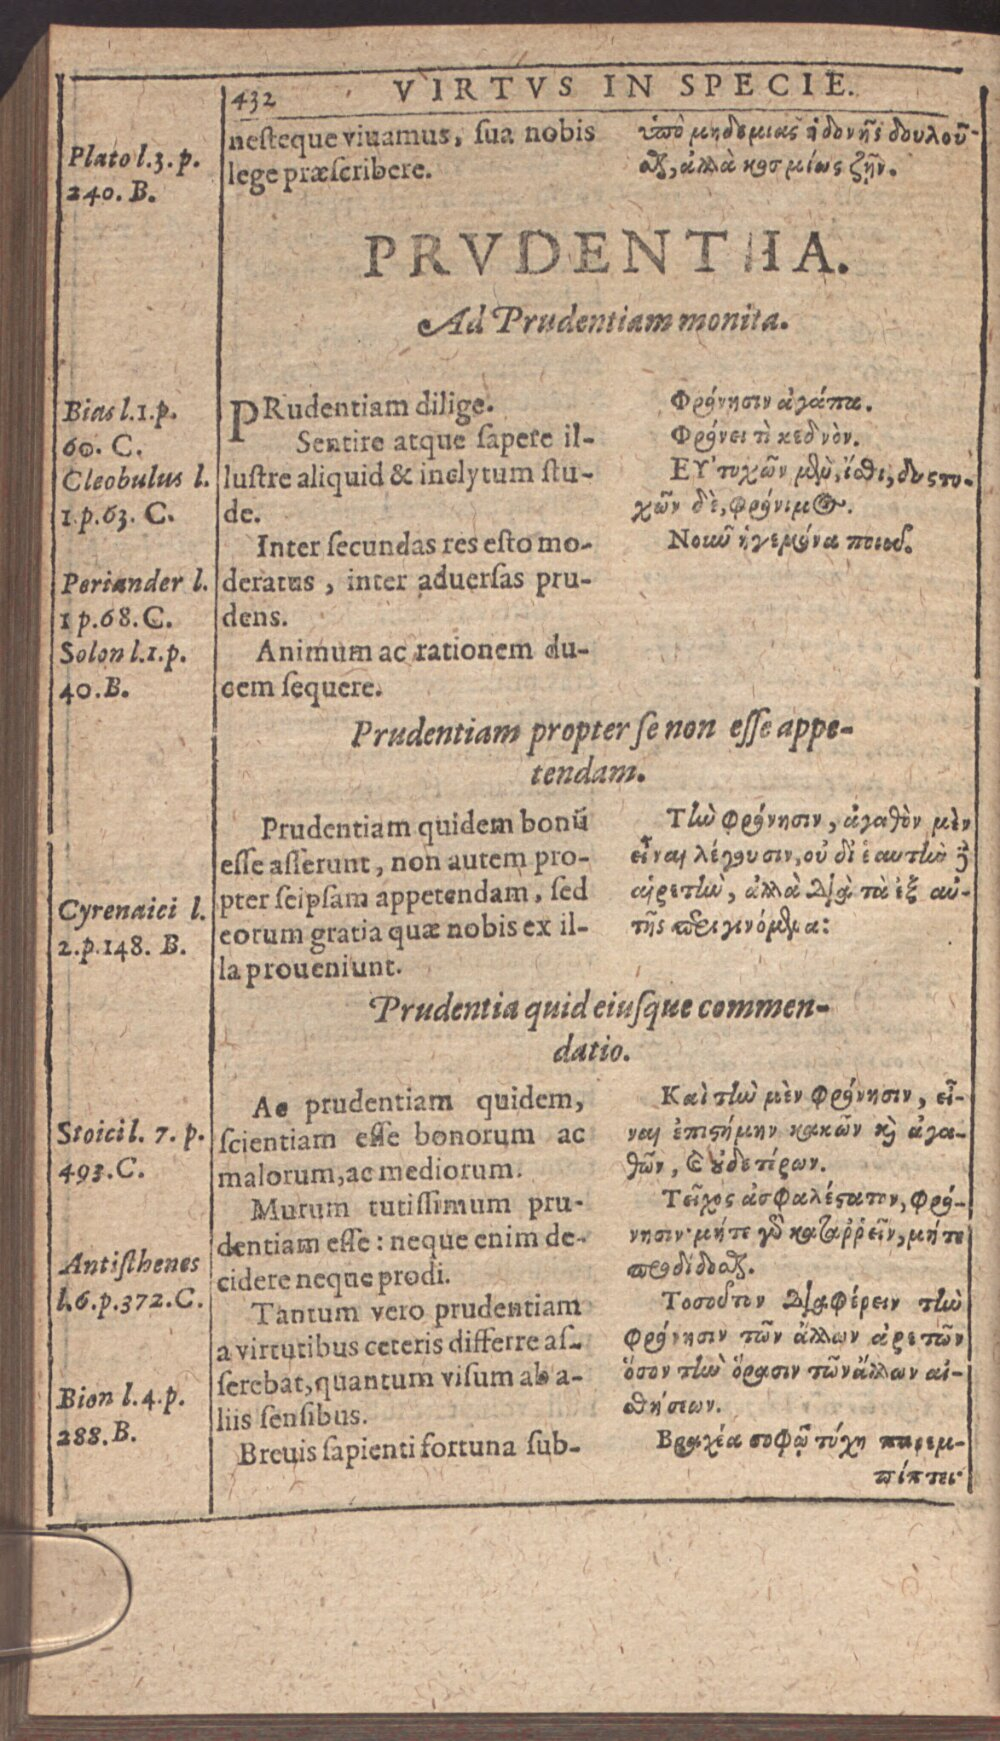 432 VIRTVS IN SPECIE.
Plato l.3.p.
240. B.
nesteque viuamus, sua nobis
lege præscribere.
ὑπὸ μηδεμιᾶς ἡδονῆς δουλοῦ-
σθαι, ἀλλὰ κοσμίως ζῇν.
PRVDENTIA.
Ad Prudentiam monita.
Bias l.1.p.
60. C.
Cleobulus l.
1.p.63. C.
Periander l.
1 p.68. C.
Solon l.1.p.
40. B.
PRudentiam dilige.
Sentire atque sapere il-
lustre aliquid & inclytum stu-
de.
Inter secundas res esto mo-
deratus, inter aduersas pru-
dens.
Animum ac rationem du-
cem sequere.
Φρόνησιν ἀγάπα.
Φρόνει τὶ κεδνὸν.
Εὐτυχῶν μὲν, ἴσθι, δυςτυ-
χῶν δὲ, φρόνιμος.
Νοῦν ἡγεμόνα ποιοῦ.
Prudentiam propter se non esse appe-
tendam.
Cyrenaici l.
2.p.148. B.
Prudentiam quidem bonū
esse asserunt, non autem pro-
pter seipsam appetendam, sed
eorum gratia quæ nobis ex il-
la proueniunt.
Τὴν φρόνησιν, ἀγαθὸν μὲν
εἶναι λέγουσιν, οὐ δι' ἑαυτὴν δὲ
αἱρετὴν, ἀλλὰ διὰ τὰ ἐξ αὐ-
τῆς περιγινόμενα:
Prudentia quid eiusque commen-
datio.
Stoici l. 7. p.
493. C.
Antisthenes
l.6.p.372.C.
Bion l.4.p.
288. B.
Ac prudentiam quidem,
scientiam esse bonorum ac
malorum, ac mediorum.
Murum tutissimum pru-
dentiam esse: neque enim de-
cidere neque prodi.
Tantum vero prudentiam
a virtutibus ceteris differre as-
serebat, quantum visum ab a-
liis sensibus.
Breuis sapienti fortuna sub-
Καὶ τὴν μὲν φρόνησιν, εἶ-
ναι ἐπιστήμην κακῶν καὶ ἀγα-
θῶν, καὶ οὐδετέρων.
Τεῖχος ἀσφαλέστατον, φρό-
νησιν· μήτε γὰρ καταῤῥεῖν, μήτε
προδίδοσθαι.
Τοσοῦτον διαφέρειν τὴν
φρόνησιν τῶν ἄλλων ἀρετῶν
ὅσον τὴν ὅρασιν τῶν ἄλλων αἰ-
σθήσεων.
Βραχέα σοφῷ τύχη παρεμ-
πίπτει·